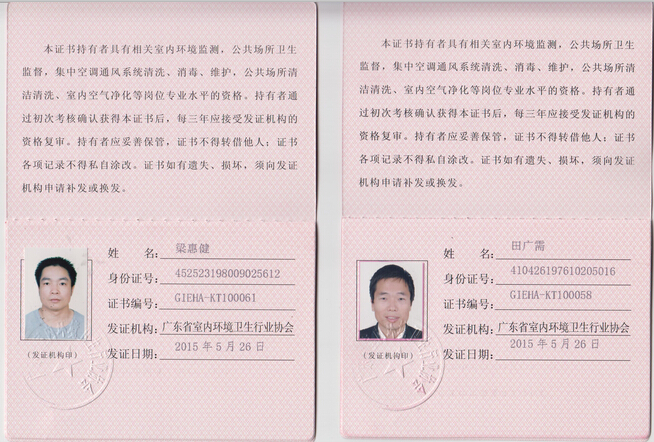 本证书持有者具有相关室内环境监测，公共场所卫生
监督，集中空调通风系统清洗、消毒、维护，公共场所清
洁清洗、室内空气净化等岗位专业水平的资格。持有者通
过初次考核确认获得本证书后，每三年应接受发证机构的
资格复审。持有者应妥善保管，证书不得转借他人；证书
各项记录不得私自涂改。证书如有遗失、损坏，须向发证
机构申请补发或换发。
姓　名：梁惠健
身份证号：452523198009025612
证书编号：GIEHA-KT100061
发证机构：广东省室内环境卫生行业协会
（发证机构印）
发证日期：2015 年 5 月 26 日
本证书持有者具有相关室内环境监测，公共场所卫生
监督，集中空调通风系统清洗、消毒、维护，公共场所清
洁清洗、室内空气净化等岗位专业水平的资格。持有者通
过初次考核确认获得本证书后，每三年应接受发证机构的
资格复审。持有者应妥善保管，证书不得转借他人；证书
各项记录不得私自涂改。证书如有遗失、损坏，须向发证
机构申请补发或换发。
姓　名：田广需
身份证号：410426197610205016
证书编号：GIEHA-KT100058
发证机构：广东省室内环境卫生行业协会
（发证机构印）
发证日期：2015 年 5 月 26 日